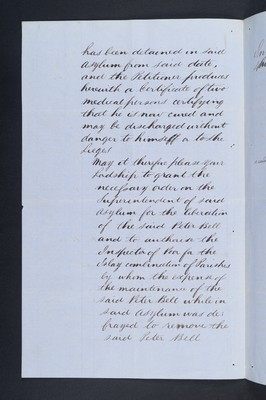 has been detained in said
Asylum from said date,
and the Petitioner produces
herewith a Certificate of two
medical persons certifying
that he is now cured and
may be discharged without
danger to himself or to the
lieges
May it therefore please your
Lordship to grant the
necessary order on the
Superintendent of said
Asylum for the liberation
of the said Peter Bell
and to authorise the
Inspector of Poor for the
Islay combination of Parishes
by whom the expense of
the maintenance of the
said Peter Bell while in
said Asylum was de=
frayed to remove the
said Peter Bell